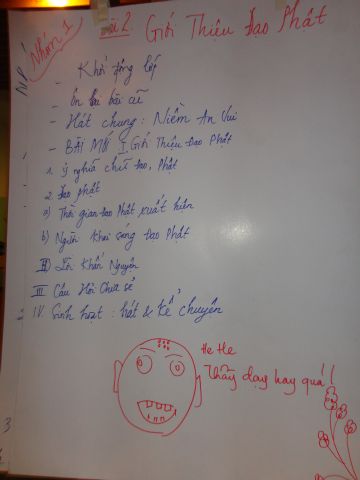 Nhóm 1
Bài 2. Giới Thiệu Đạo Phật
- Khởi động lớp
- Ôn lại bài cũ
- Hát chung: Niềm An Vui
- BÀI MỚI I. Giới Thiệu Đạo Phật
1. ý nghĩa chữ đạo, Phật
2. Đạo Phật
a) Thời gian đạo Phật xuất hiện
b) Người Khai sáng Đạo Phật
II) Lời Khấn Nguyện
III Câu Hỏi Chia sẻ
IV. Sinh hoạt: hát & kể chuyện
He He
Thầy dạy hay quá!!